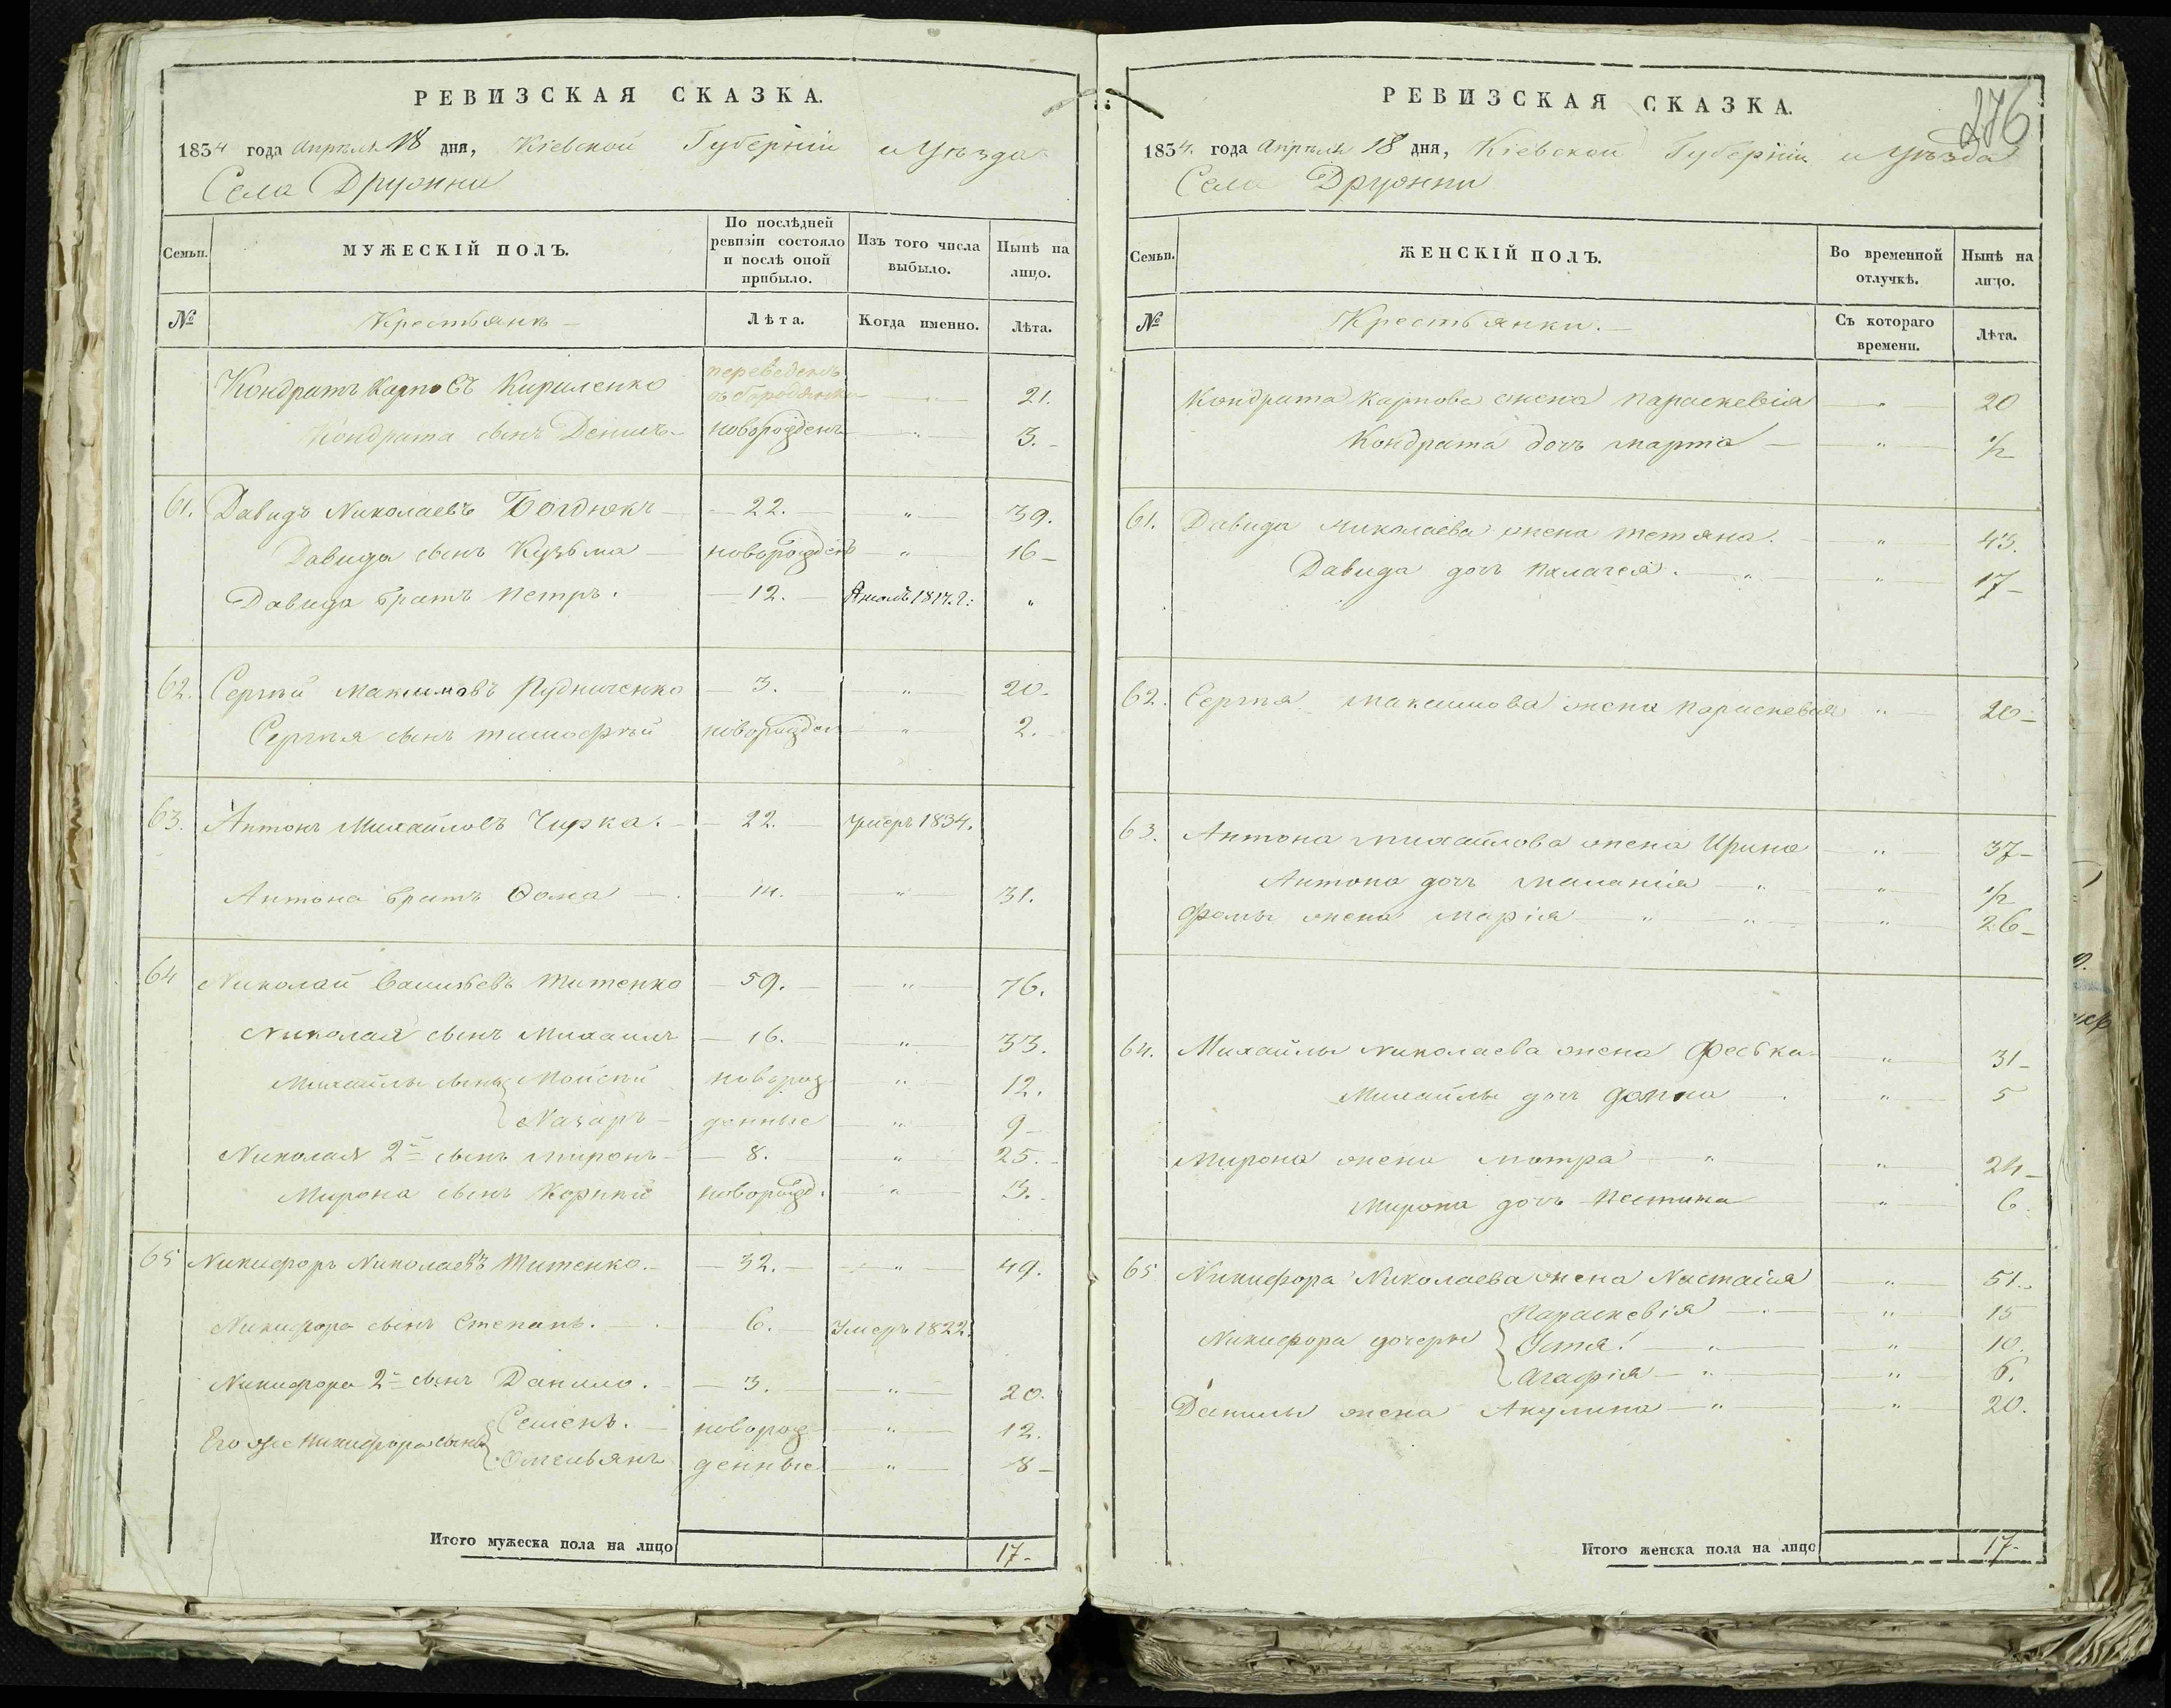 РЕВИЗСКАЯ СКАЗКА.
1834 года Апрѣля 18 дня, Кіевской Губерніи и Уѣзда
Села Дружни
Семьи. МУЖЕСКІЙ ПОЛЪ. По послѣдней ревизіи состояло и послѣ оной прибыло. Изъ того числа выбыло. Нынѣ на лицо.
№ Крестьянъ – Лѣта. Когда именно. Лѣта.
Кондратъ Карповъ Кириленко переведенъ 21.
Кондрата сынъ Денисъ новорожденъ " 3.
61. Давидъ Николаевъ 22. " 39.
Давида сынъ Кузьма новорожденъ " 16
Давида братъ Петръ. 12. 1817. г: "
62. Сергѣй Максимовъ Рудниченко 3. " 20
Сергѣя сынъ Тимофѣй новорожден " 2.
63. Антонъ Михайловъ Чирка. 22. умеръ 1834.
Антона братъ Ѳома 14. " 31.
64 Николай Васильевъ Титенко 59. " 76.
Николая сынъ Михаилъ 16. " 33.
Михайлы сыны Моисей новорож " 12.
Назаръ денные " 9
Николая 2й сынъ Миронъ 8. " 25.
Мирона сынъ Корнѣй новорожд. " 3.
65 Никифоръ Николаевъ Титенко. 32. " 49.
Никифора сынъ Степанъ. 6. Умеръ 1822.
Никифора 2й сынъ Данило. 3. " 20.
Его же Никифора сыны Семенъ. новорож " 12.
Омельянъ денные " 8
Итого мужеска пола на лицо 17.
276
РЕВИЗСКАЯ СКАЗКА.
1834. года Апрѣля 18 дня, Кіевской Губерніи и Уѣзда
Села Дружни
Семьи. ЖЕНСКІЙ ПОЛЪ. Во временной отлучкѣ. Нынѣ на лицо.
№ Крестьянки. – Съ котораго времени. Лѣта.
Кондрата Карпова жена Параскевія " 20
Кондрата дочь Марта " 1/2
61. Давида Николаева жена Тетяна. " 43.
Давида дочь Палагея. " " 17
62. Сергѣя Максимова жена Параскевія " 20
63. Антона Михайлова жена Ирина " 37
Антона дочь Маланія " " 1/2
Фомы жена Марія " " " 26
64. Михайлы Николаева жена Феська " 31
Михайлы дочь Домна " 5
Мирона жена Мотра " " 24
Мирона дочь Пестина " 6.
65 Никифора Николаева жена Настасія " 51.
Параскевія " " 15
Никифора дочери Устя " " 10.
Агафія " " 6.
Данилы жена Акулина " " 20.
Итого женска пола на лицо 17.